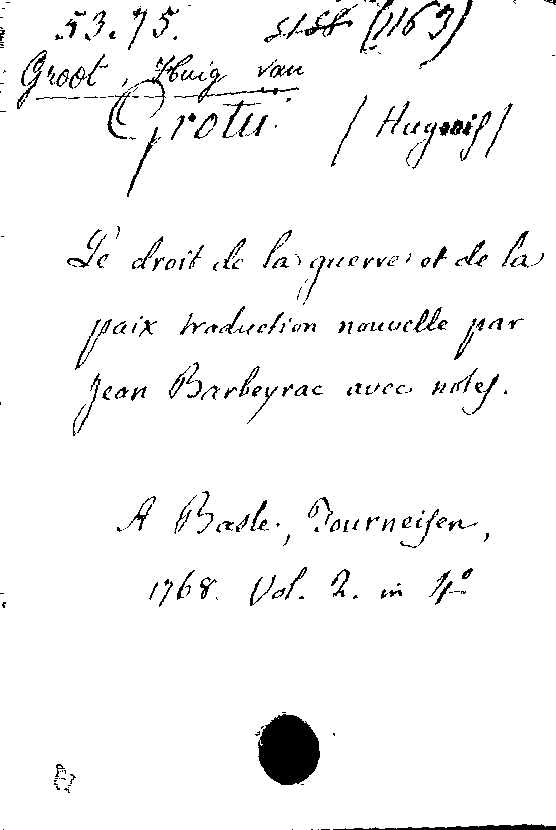 53.75. (1163)
Groot, Huig van
Grotii / Hugonis /
Le droit de la guerre et de la
paix traduction nouvelle par
Jean Barbeyrac avec notes.
A Basle, Tourneisen,
1768. Vol. 2. in 4º